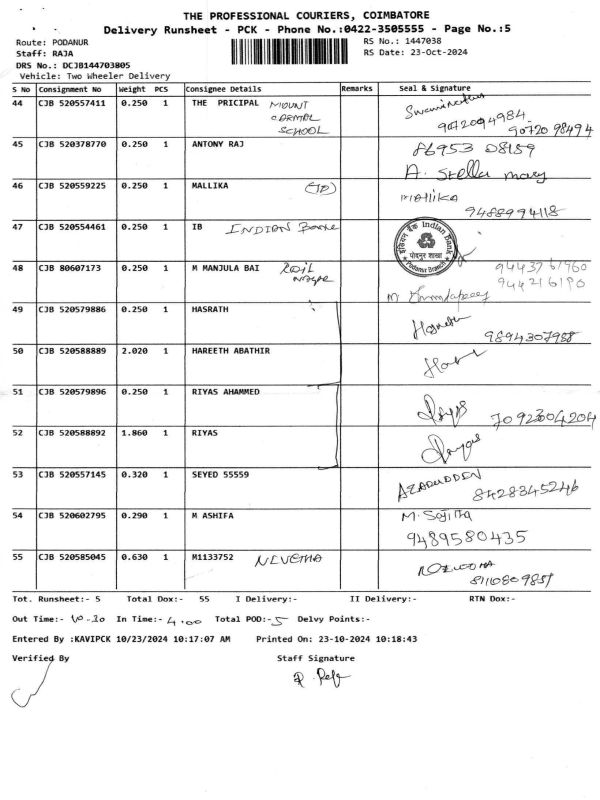 THE PROFESSIONAL COURIERS, COIMBATORE
Delivery Runsheet - PCK - Phone No.:0422-3505555 - Page No.:5
Route: PODANUR RS No.: 1447038
Staff: RAJA RS Date: 23-Oct-2024
DRS No.: DCJB144703805
Vehicle: Two Wheeler Delivery
S No Consignment No Weight PCS Consignee Details Remarks Seal & Signature
44 CJB 520557411 0.250 1 THE PRICIPAL MOUNT
CARMEL
SCHOOL
9072094984
90720 98494
45 CJB 520378770 0.250 1 ANTONY RAJ 86953 08159
A. Stella mary
46 CJB 520559225 0.250 1 MALLIKA Mallika
9488994118
47 CJB 520554461 0.250 1 IB INDIAN Bank
इंडियन बैंक Indian Bank
पोदनूर शाखा
Podanur Branch
48 CJB 80607173 0.250 1 M MANJULA BAI
944216190
49 CJB 520579886 0.250 1 HASRATH
9894307988
50 CJB 520588889 2.020 1 HAREETH ABATHIR
51 CJB 520579896 0.250 1 RIYAS AHAMMED
7092304204
52 CJB 520588892 1.860 1 RIYAS
53 CJB 520557145 0.320 1 SEYED 55559
8428345246
54 CJB 520602795 0.290 1 M ASHIFA
9489580435
55 CJB 520585045 0.630 1 M1133752 NIVETHA
Tot. Runsheet:- 5 Total Dox:- 55 I Delivery:- II Delivery:- RTN Dox:-
Out Time:- 10.30 In Time:- 4.00 Total POD:- 5 Delvy Points:-
Entered By :KAVIPCK 10/23/2024 10:17:07 AM Printed On: 23-10-2024 10:18:43
Verified By Staff Signature